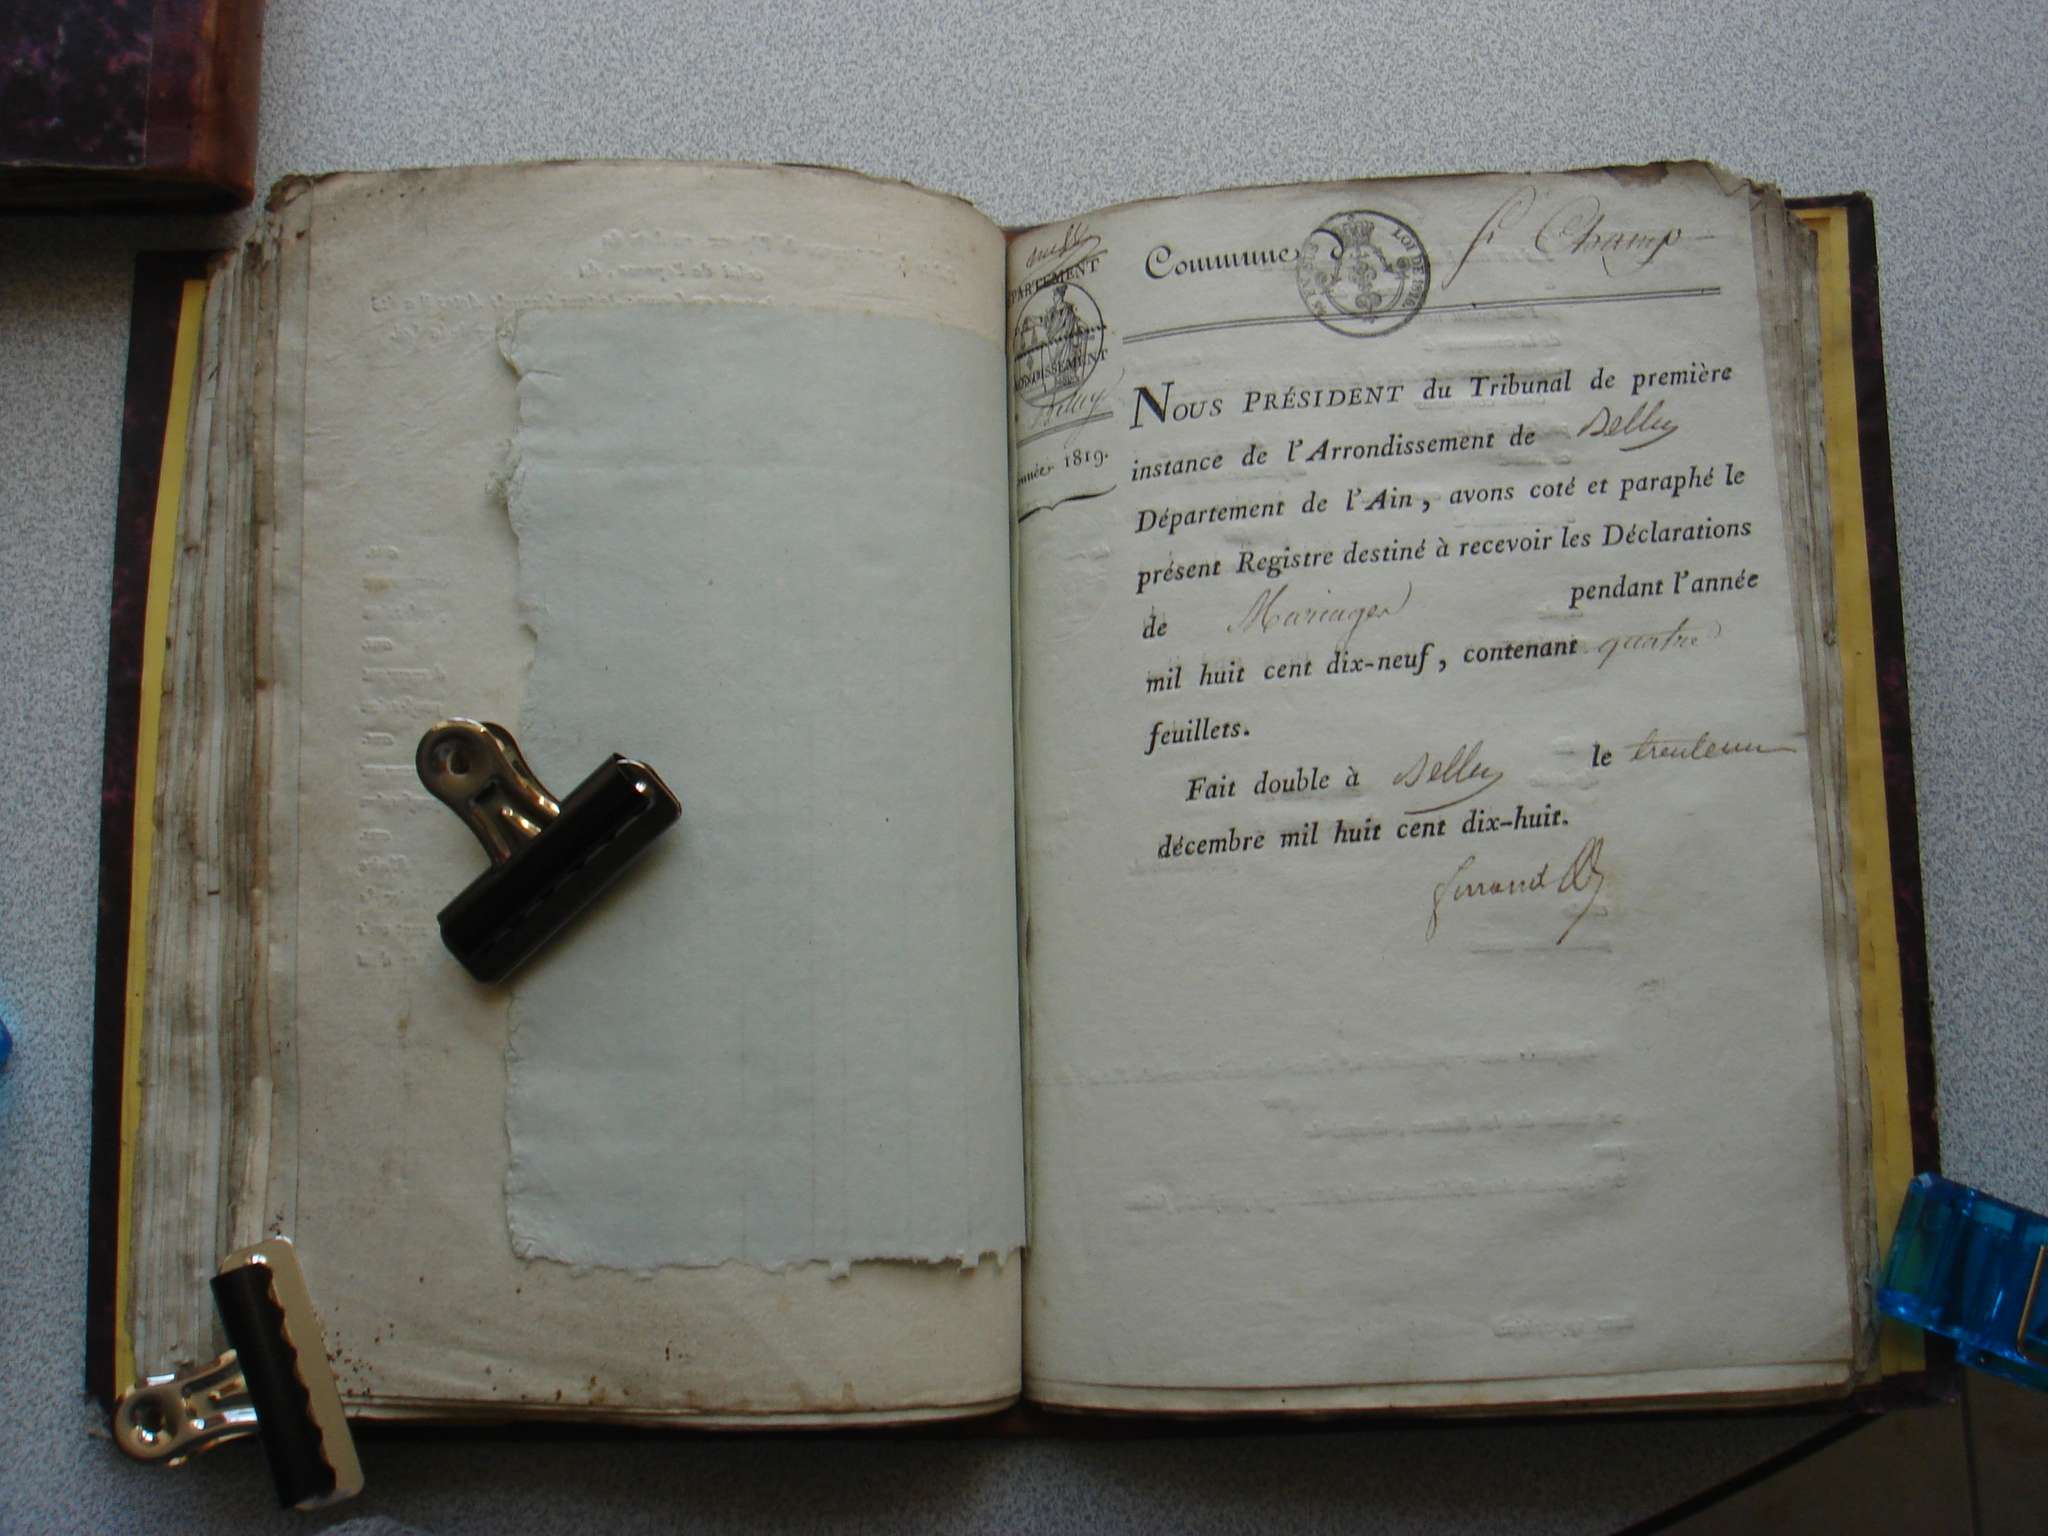 PARTEMENT
ONDISSEMENT
Belley
année 1819.
Commune d
LOI DE 1816
St Champ
NOUS PRÉSIDENT du Tribunal de première
instance de l'Arrondissement de Belley
Département de l'Ain, avons coté et paraphé le
présent Registre destiné à recevoir les Déclarations
de Mariages pendant l'année
mil huit cent dix-neuf, contenant quatre
feuillets.
Fait double à Belley le trente un
décembre mil huit cent dix-huit.